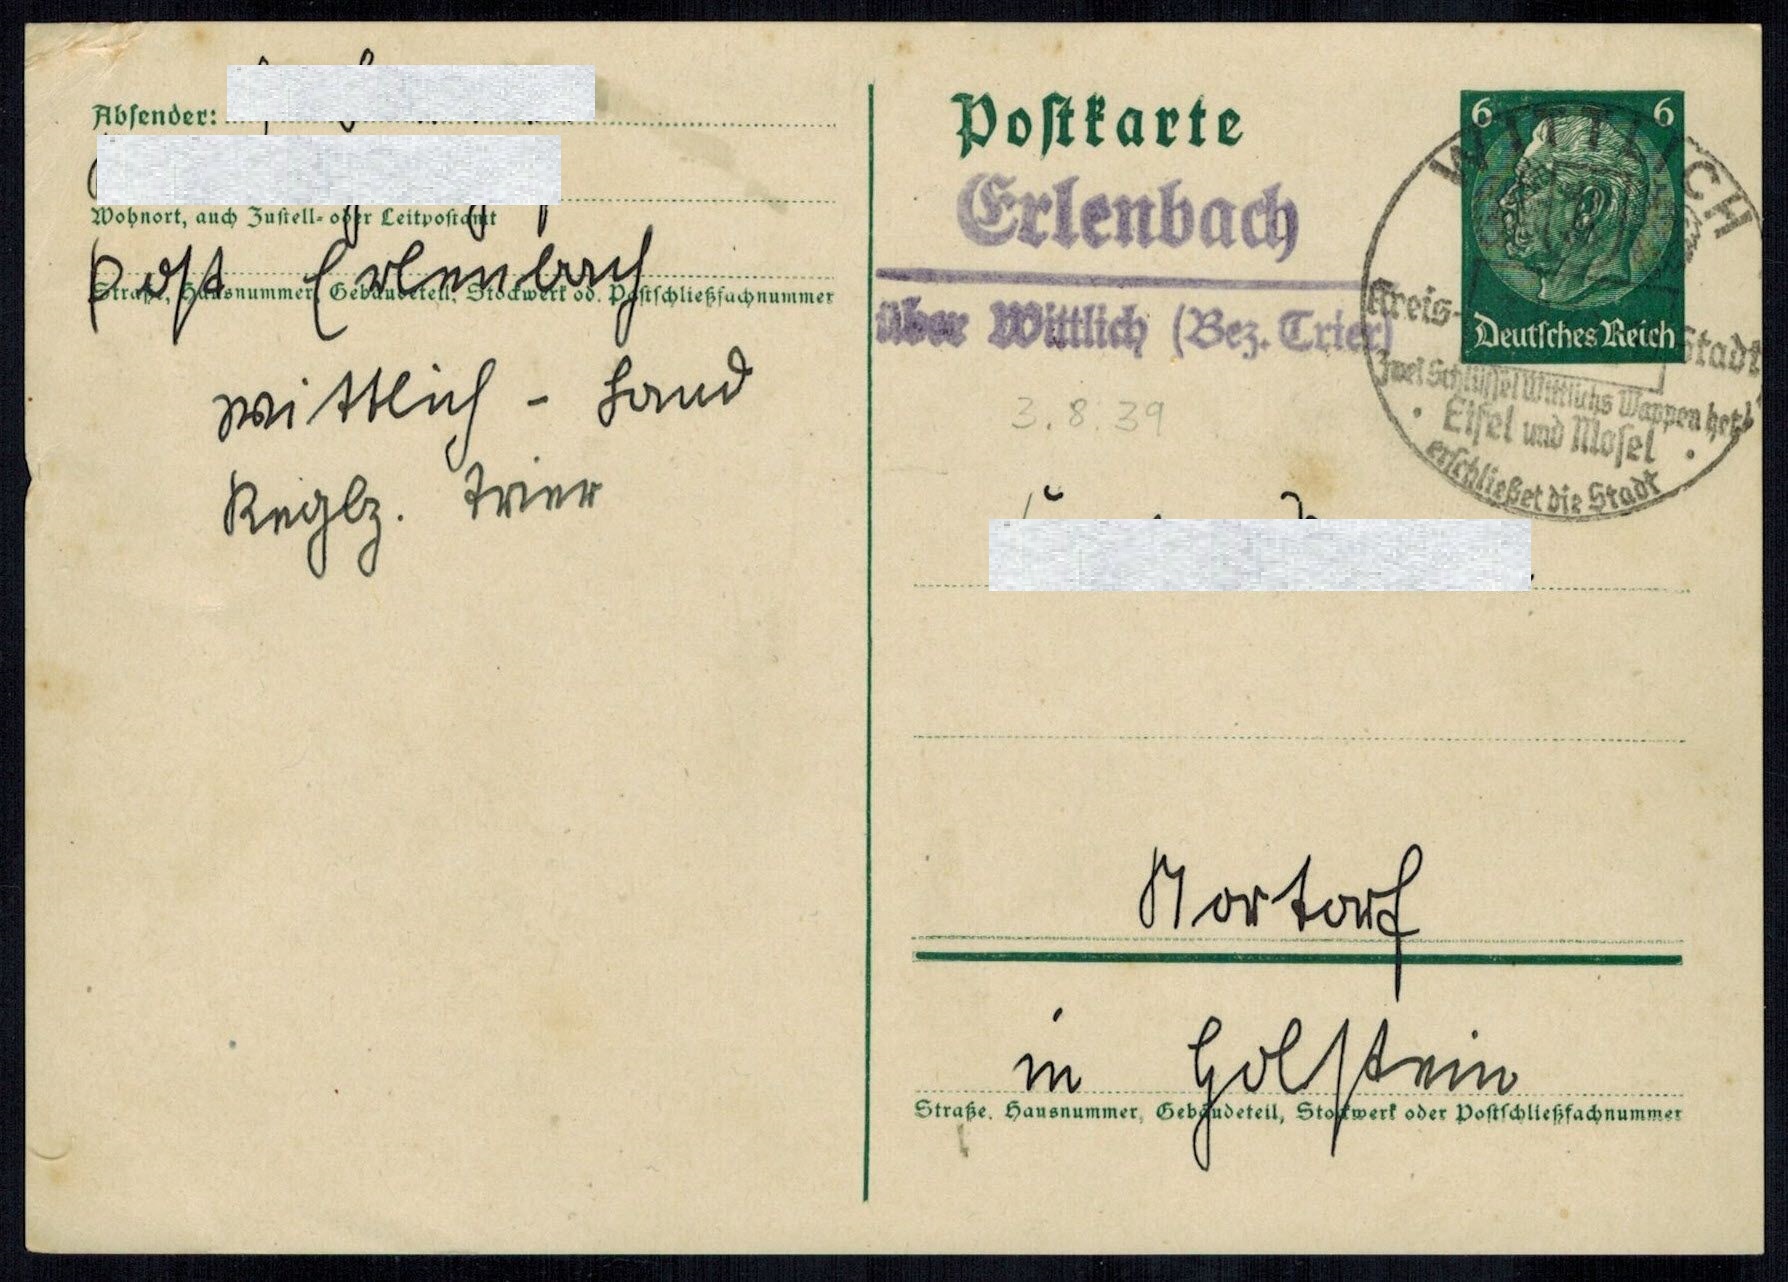 Absender:
Wohnort, auch Zustell- oder Leitpostamt
Post Erlenbach
Straße, Hausnummer, Gebäudeteil, Stockwerk od. Postschließfachnummer
Wittlich - Land
Regbz. Trier
Postkarte
6 6
Deutsches Reich
WITTLICH
Kreis- Stadt
Zwei Schlüssel Wittlichs Wappen hat
Eifel und Mosel
erschließet die Stadt
Erlenbach
über Wittlich (Bez. Trier)
3.8.39
Nortorf
in Holstein
Straße, Hausnummer, Gebäudeteil, Stockwerk oder Postschließfachnummer